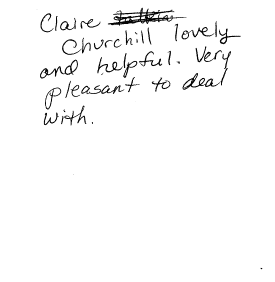 Claire
Churchill lovely
and helpful. Very
pleasant to deal
with.